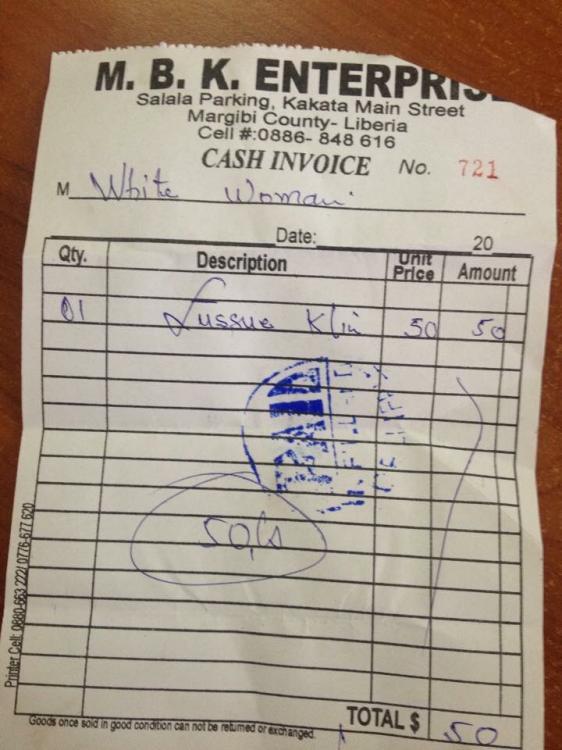 M. B. K. ENTERPRIS
Salala Parking, Kakata Main Street
Margibi County- Liberia
Cell #:0886- 848 616
CASH INVOICE No. 721
M White Woman
Date: 20
Qty. Description Unit Price Amount
01 Lussue Klin 50 50
50
Printer Cell: 0880-663 222/ 0776-677 620
TOTAL $ 50
Goods once sold in good condition can not be returned or exchanged.